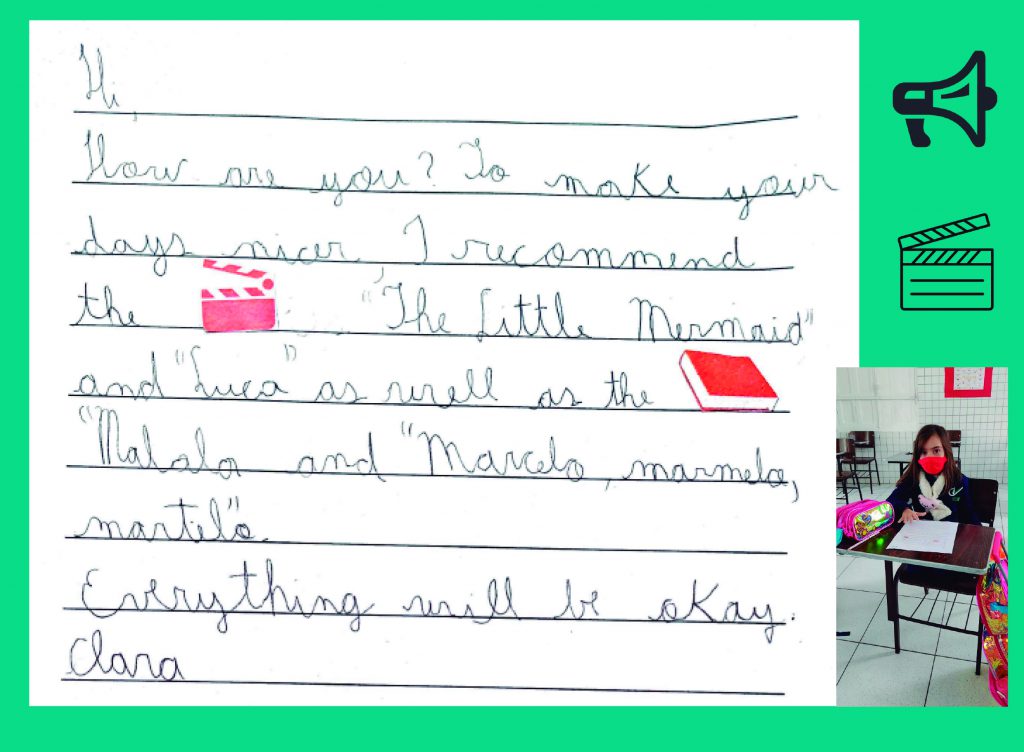 Hi,
How are you? To make your
days nicer, I recommend
the "The Little Mermaid"
and "Luca" as well as the
"Malala and "Marcelo, marmelo,
martelo".
Everything will be okay.
Clara